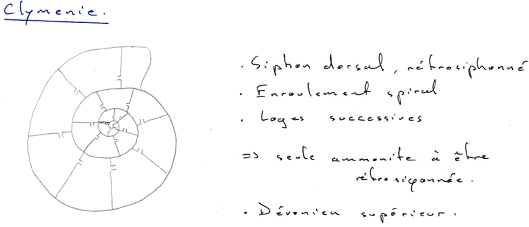 Clymenie.
. Siphon dorsal, rétrosiphonné
. Enroulement spiral
. Loges successives
=> seule ammonite à être
rétrosiponnée.
. Dévonien supérieur.